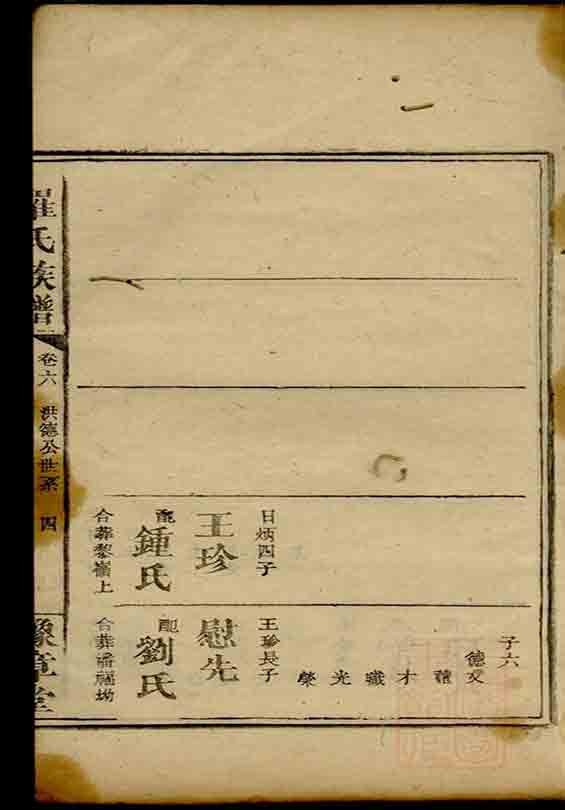 日炳四子
王珍
配鍾氏
合葬黎嶺上
子六
德文
才
職
光
榮
王珍長子
慰先
配劉氏
合葬潘福坳
羅氏族譜
卷六
洪德公世系
四
豫章堂